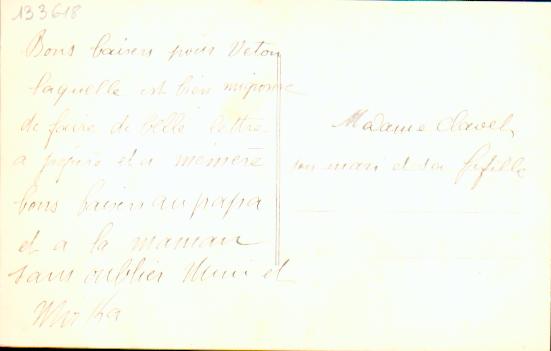 133618
Bons baisers pour Veton
laquelle est bien mignonne
de faire de belle lettre
a pépère et a mémère
bons baisers au papa
et a la maman
sans oublier Mimi et
Madame Clavel
son mari et sa fifille